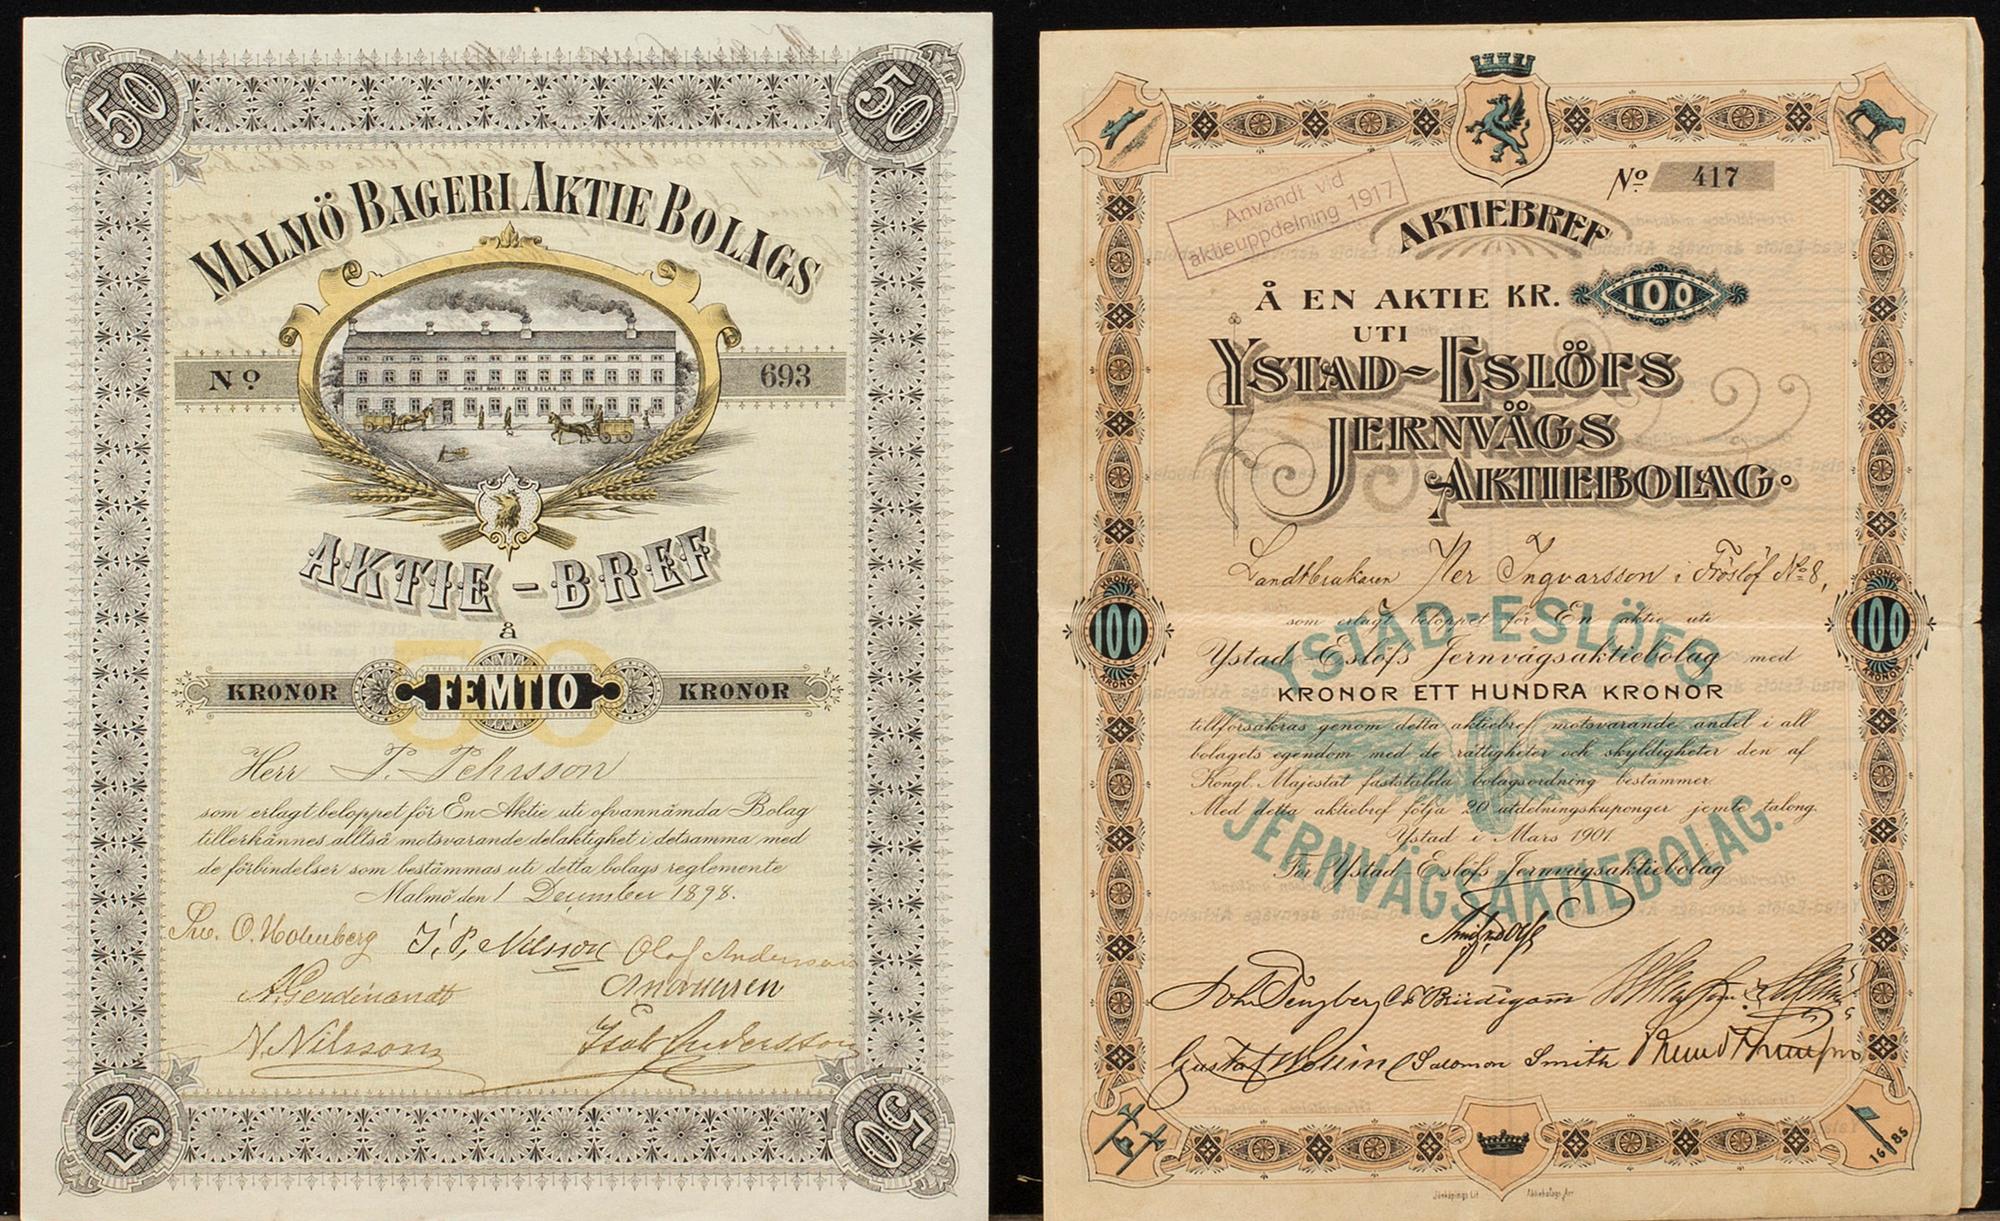 50
50
MALMÖ BAGERI AKTIE BOLAGS
MALMÖ BAGERI AKTIE BOLAG
No 693
AKTIE-BREF
å
50
KRONOR FEMTIO KRONOR
Herr P. Pehrsson
som erlagt beloppet för En Aktie uti ofvannämda Bolag
tillerkännes alltså motsvarande delaktighet i detsamma med
de förbindelser som bestämmas uti detta bolags reglemente
Malmö den 1 December 1898.
O. Holmberg J. P. Nilsson Olof Andersson
A. Gerdinandt
N. Nilsson Andersson
50
50
No 417
Användt vid
aktieuppdelning 1917
AKTIEBREF
Å EN AKTIE KR. 100
UTI
YSTAD-ESLÖFS
JERNVÄGS
AKTIEBOLAG.
Landtbrukaren Per Ingvarsson i Fröslöf No 8,
som erlagt beloppet för En aktie uti
Ystad-Eslöfs Jernvägsaktiebolag med
KRONOR ETT HUNDRA KRONOR
tillförsäkras genom detta aktiebref motsvarande andel i all
bolagets egendom med de rättigheter och skyldigheter den af
Kongl. Majestät fastställda bolagsordning bestämmer.
Med detta aktiebref följa 20 utdelningskuponger jemte talong.
Ystad i Mars 1901.
För Ystad-Eslöfs Jernvägsaktiebolag
YSTAD-ESLÖFS
JERNVÄGSAKTIEBOLAG.
KRONOR 100 KRONOR
KRONOR 100 KRONOR
John Tengberg
Gustaf Salomon Smith
1685
Jönköpings Lit. Aktiebolag